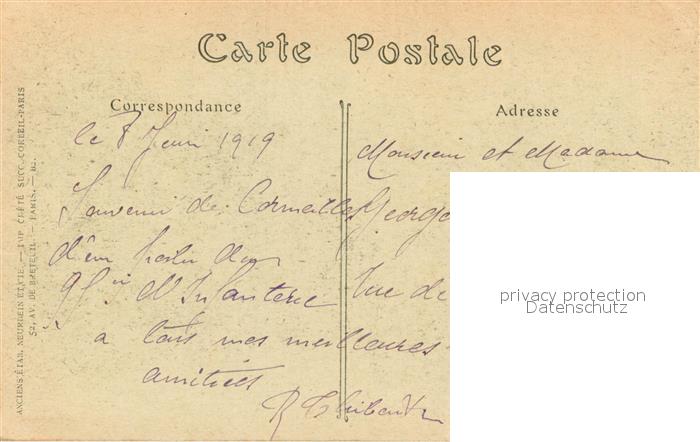 Carte Postale
Correspondance
Adresse
le 8 1919
Souvenir de Cormeilles
d'un Poilu du
d'Infanterie
a tous mes meilleures
amitiés
R Thibault
Monsieur et Madame
George
rue de
privacy protection
Datenschutz
ANCIENS ÉTAB. NEURDEIN ET CIE. — IMP. CRÉTÉ SUCC. CORBEIL-PARIS
52, AV. DE BRETEUIL — PARIS.